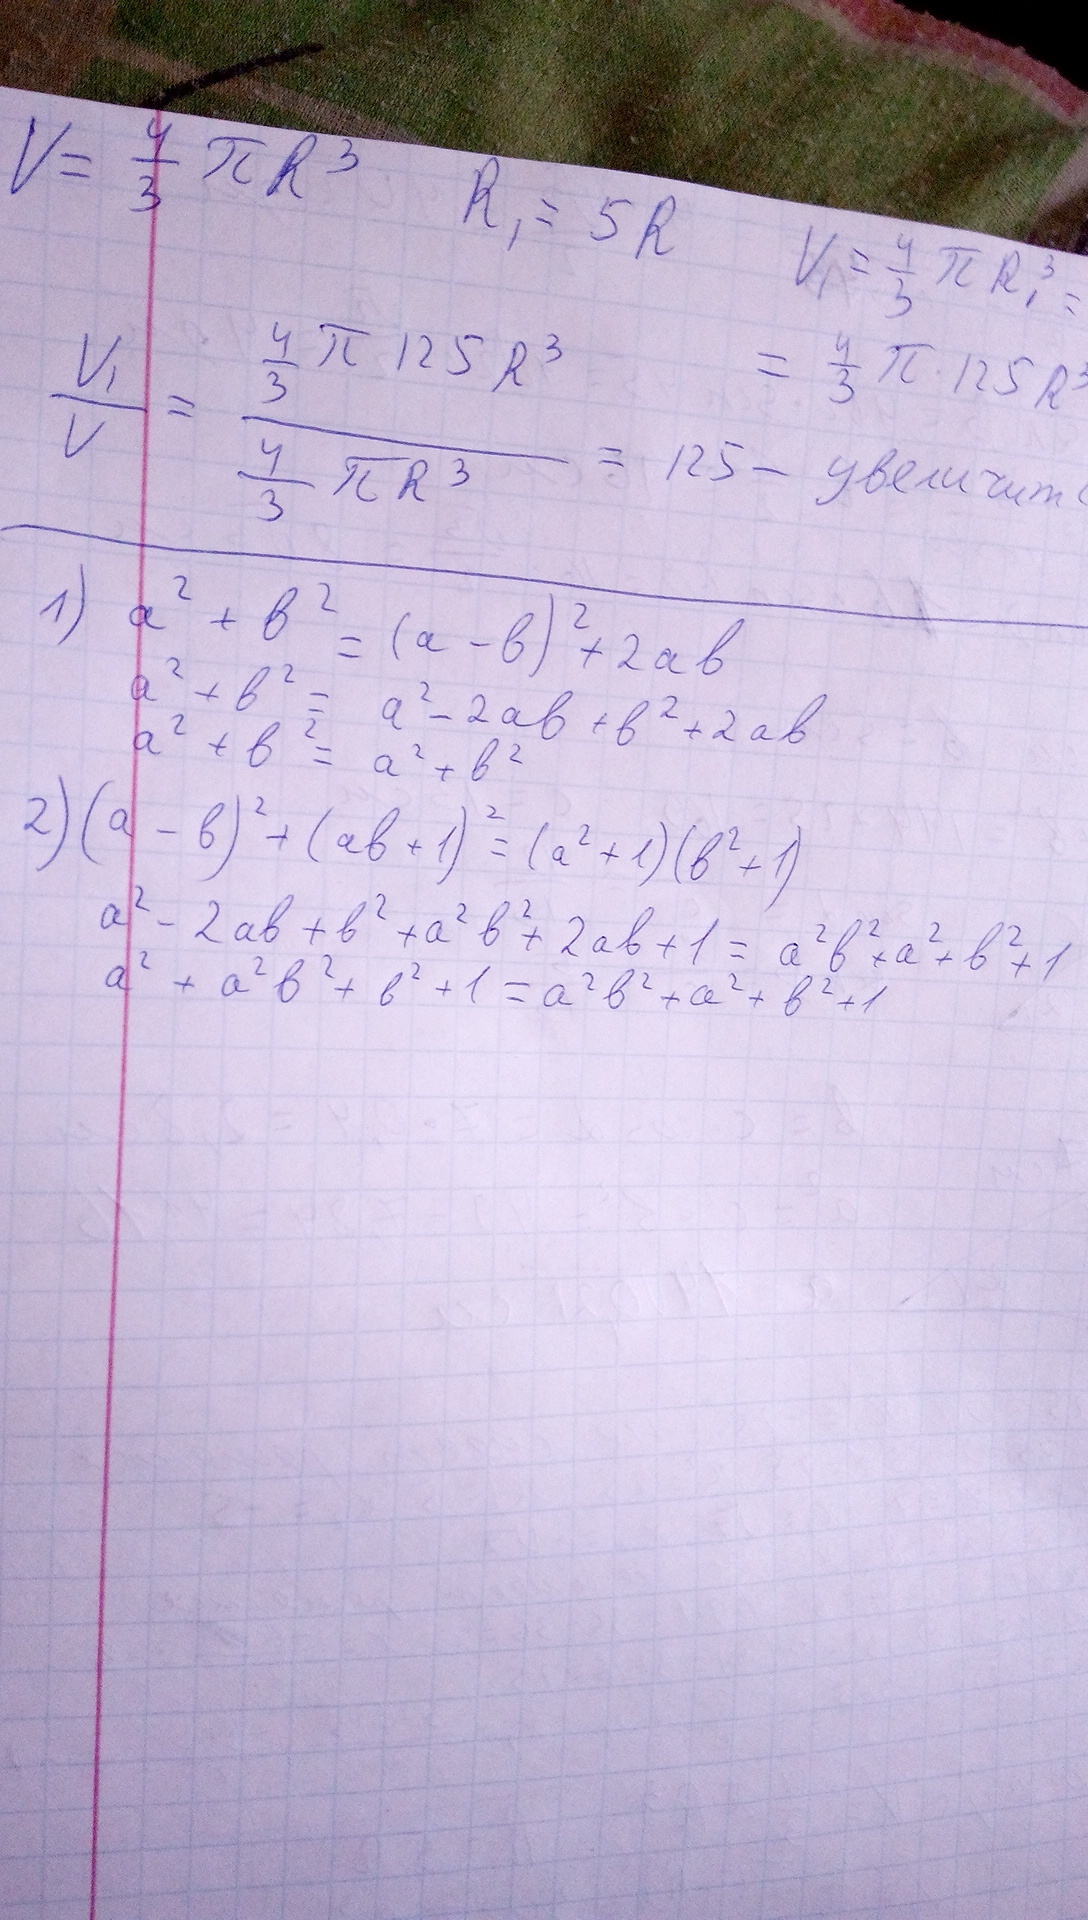 V = 4/3 πR³ R₁ = 5R V₁ = 4/3 πR₁³ =
= 4/3 π · 125R³
V₁/V = (4/3 π 125R³)/(4/3 πR³) = 125 – увеличит
1) a² + b² = (a – b)² + 2ab
a² + b² = a² – 2ab + b² + 2ab
a² + b² = a² + b²
2) (a – b)² + (ab + 1)² = (a² + 1)(b² + 1)
a² – 2ab + b² + a²b² + 2ab + 1 = a²b² + a² + b² + 1
a² + a²b² + b² + 1 = a²b² + a² + b² + 1